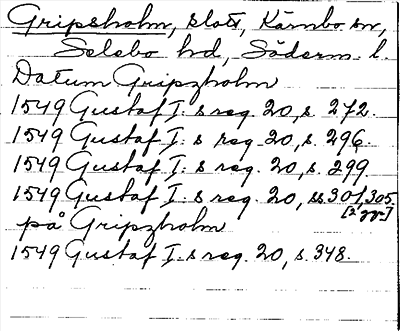 Gripsholm, slott, Kärnbo sn,
Selebo hd, Söderm. l.
Datum Gripzholm
1549 Gustaf I: s reg. 20, s. 272.
1549 Gustaf I: s reg. 20, s. 296.
1549 Gustaf I: s reg. 20, s. 299.
1549 Gustaf I: s reg. 20, ss 301, 305.
[2 ggr]
på Gripzholm
1549 Gustaf I: s reg. 20, s. 348.